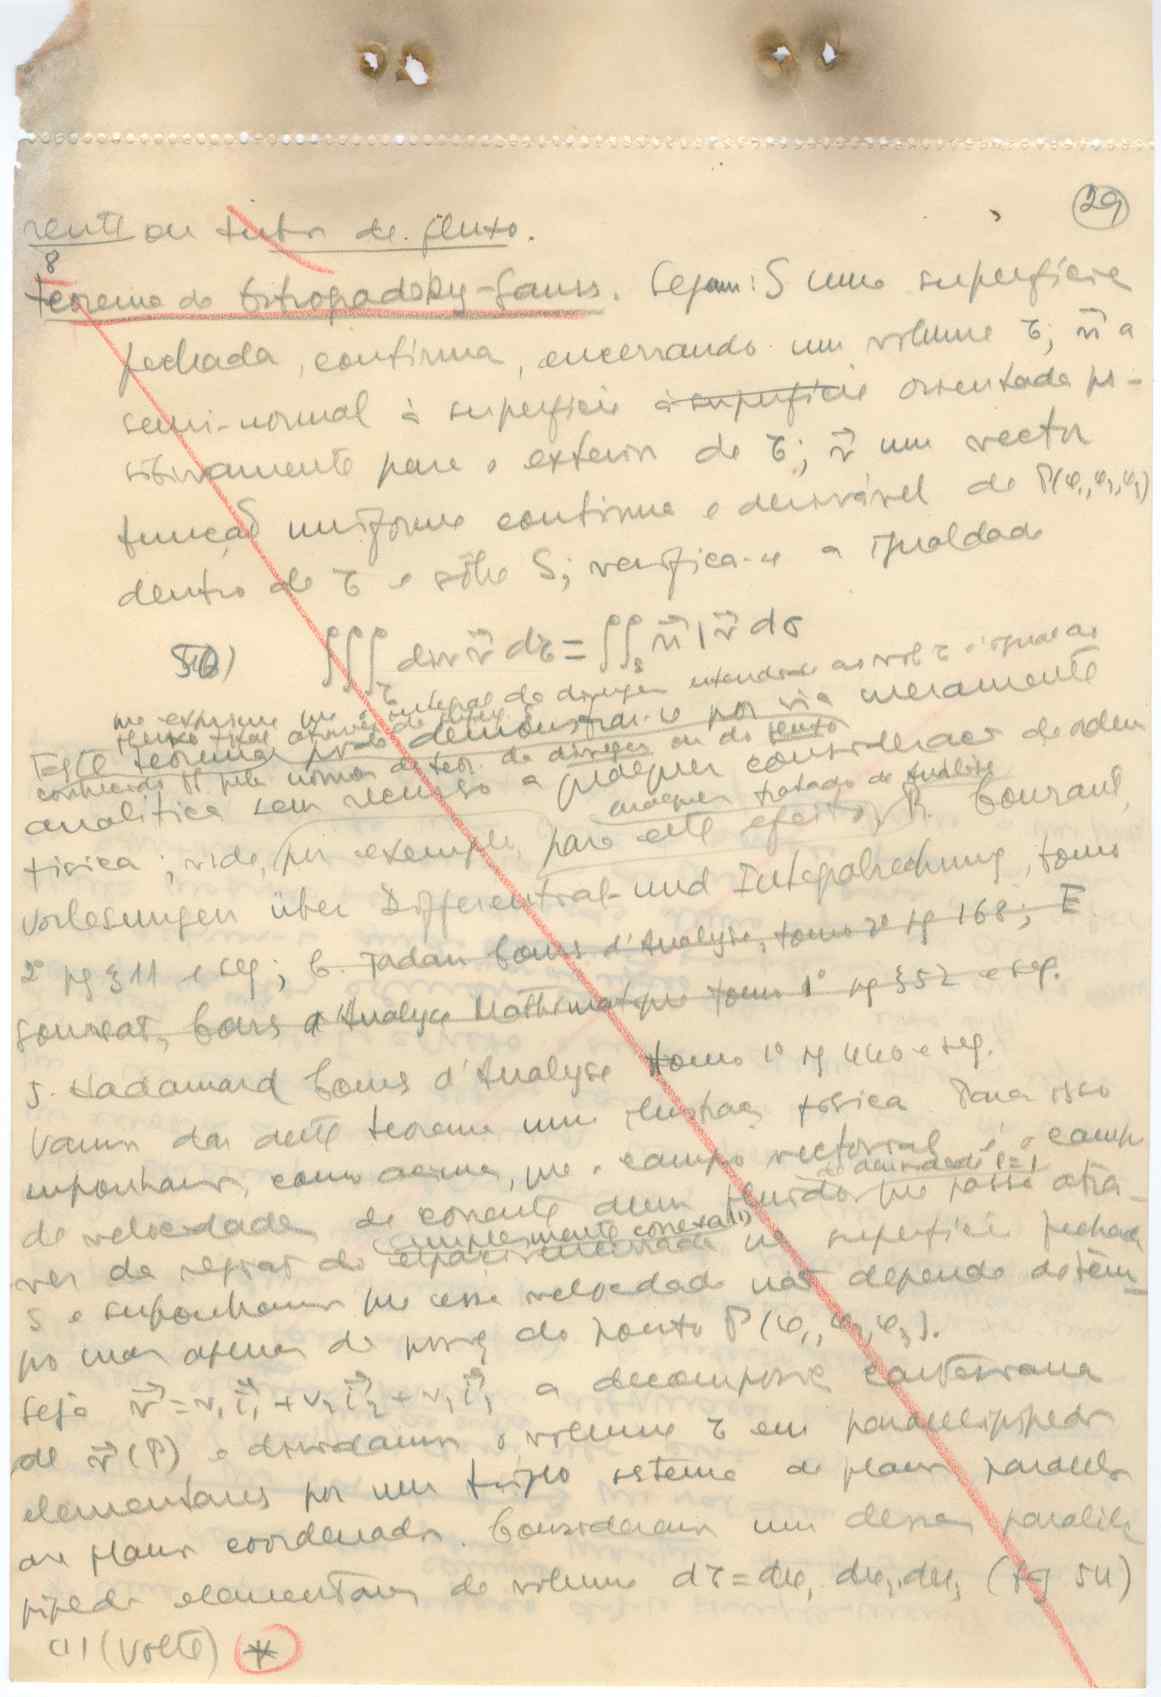 29
rente ou tubo de fluxo.
8
Teorema de Ostrogradsky-Gauss. Sejam: S uma superficie
fechada, contínua, encerrando um volume τ; n⃗ a
semi-normal à superficie à superficie orientada po-
sitivamente para o exterior de τ; v⃗ um vector
função uniforme continua e derivável de P(φ₁,φ₂,φ₃)
dentro de τ e sôbre S; verifica-se a igualdade
∭_τ div v⃗ dτ = ∬_S n⃗ | v⃗ dσ
que exprime que o integral da diverg. extendido ao vol τ é igual ao
fluxo total através de
Este teorema pode demonstrar-se por via meramente
conhecido pelo nome de teor. da diverg. ou do fluxo
analitica sem recurso a qualquer consideração de ordem
qualquer tratado de Análise
fisica; vide, por exemplo, para este efeito, R. Courant,
Vorlesungen über Differential- und Integralrechnung, tomo
2º pg § 11 e seg; C. Jordan Cours d'Analyse, tomo 2º pg 168; E.
Goursat, Cours d'Analyse Mathématique tomo 1º pg § 52 e seg.
J. Hadamard Cours d'Analyse tomo 1º pg 440 e seg.
Vamos dar deste teorema uma ilustração física. Para isso
suponhamos, como acima, que o campo vectorial é o campo
de densidade ρ=1
de velocidades de corrente dum fluido que passe atra-
simplesmente conexa (1)
vez da região do espaço encerrada na superficie fechada
S e suponhamos que essa velocidade não depende do tem-
po mas apenas da posiç. do ponto P(φ₁,φ₂,φ₃).
Seja v⃗ = v₁ i⃗₁ + v₂ i⃗₂ + v₃ i⃗₃ a decomposiç. cartesiana
de v⃗(P) e dividamos o volume τ em paralelipipedos
elementares por um triplo sistema de planos paralelos
aos planos coordenados. Consideremos um desses paralele-
pipedos elementares de volume dτ = dφ₁ dφ₂ dφ₃ (fig 54)
(1) (Volte) *